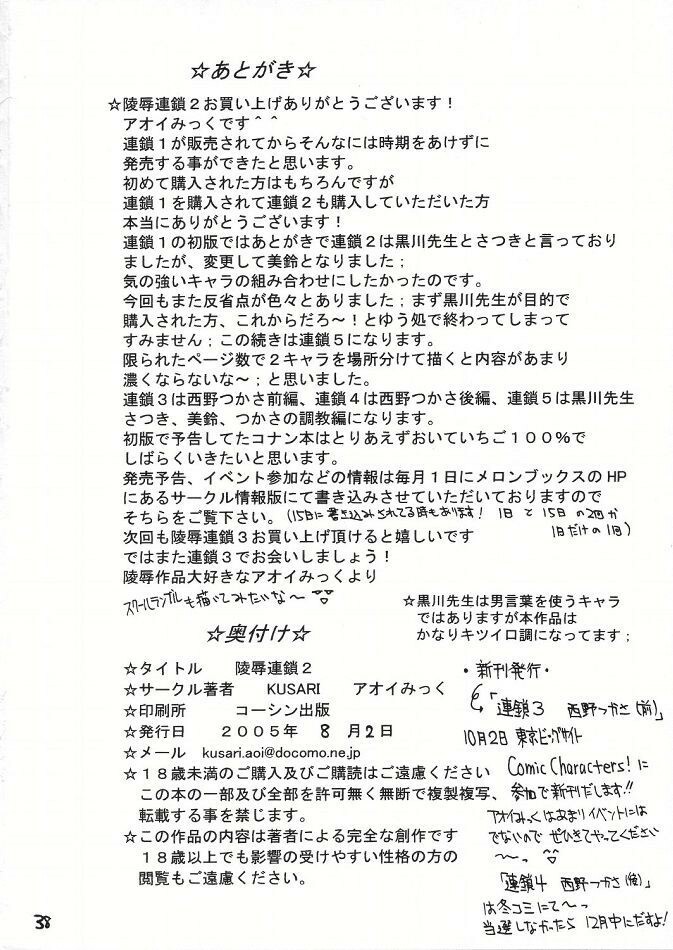 ☆あとがき☆
☆陵辱連鎖２お買い上げありがとうございます！
アオイみっくです＾＾
連鎖１が販売されてからそんなには時期をあけずに
発売する事ができたと思います。
初めて購入された方はもちろんですが
連鎖１を購入されて連鎖２も購入していただいた方
本当にありがとうございます！
連鎖１の初版ではあとがきで連鎖２は黒川先生とさつきと言っており
ましたが、変更して美鈴となりました；
気の強いキャラの組み合わせにしたかったのです。
今回もまた反省点が色々とありました；まず黒川先生が目的で
購入された方、これからだろ～！とゆう処で終わってしまって
すみません；この続きは連鎖５になります。
限られたページ数で２キャラを場所分けて描くと内容があまり
濃くならないな～；と思いました。
連鎖３は西野つかさ前編、連鎖４は西野つかさ後編、連鎖５は黒川先生
さつき、美鈴、つかさの調教編になります。
初版で予告してたコナン本はとりあえずおいていちご１００％で
しばらくいきたいと思います。
発売予告、イベント参加などの情報は毎月１日にメロンブックスのHP
にあるサークル情報版にて書き込みさせていただいておりますので
そちらをご覧下さい。（15日に書き込みされてる時もあります！ 1日と15日の2回か
1日だけの1回）
次回も陵辱連鎖３お買い上げ頂けると嬉しいです
ではまた連鎖３でお会いしましょう！
陵辱作品大好きなアオイみっくより
スクールランブルも描いてみたいな～
☆黒川先生は男言葉を使うキャラ
ではありますが本作品は
かなりキツイロ調になってます；
☆奥付け☆
☆タイトル　陵辱連鎖２
☆サークル著者　KUSARI　アオイみっく
☆印刷所　コーシン出版
☆発行日　２００５年 8 月2日
☆メール　kusari.aoi@docomo.ne.jp
☆１８歳未満のご購入及びご購読はご遠慮ください
この本の一部及び全部を許可無く無断で複製複写、
転載する事を禁じます。
☆この作品の内容は著者による完全な創作です
１８歳以上でも影響の受けやすい性格の方の
閲覧もご遠慮ください。
・新刊発行・
「連鎖3 西野つかさ(前)」
10月2日 東京ビッグサイト
Comic Characters! に
参加で新刊だします!!
アオイみっくはあまりイベントには
でないので ぜひきてやってください
～っ
「連鎖4 西野つかさ(後)」
は冬コミにて～っ
当選しなかったら 12月中にだすよ!
38